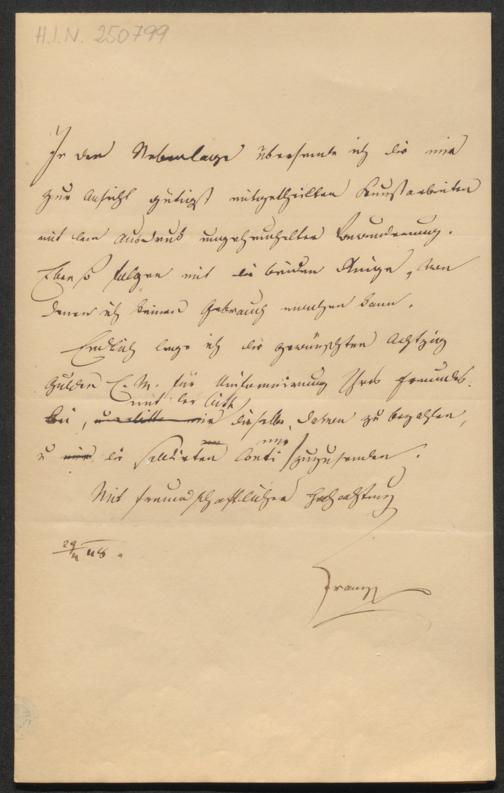 H.I.N. 250799
In der Nebenlage übersende ich die mir
zur Ansicht gütigst mitgetheilten Kunstarbeiten
mit dem Ausdruck ungeheuchelter Bewunderung.
Ebenso folgen mit die beiden Ringe, von
denen ich keinen Gebrauch machen kann.
Endlich lege ich die gewünschten Achtzig
Gulden C. M. für Ihres Freundes
mit der Bitte
bei, und bitte mir dieselbe, zu bezahlen,
mir
u mir die Conti zuzusenden.
Mit freundschaftlicher Hochachtung
48.
Franz